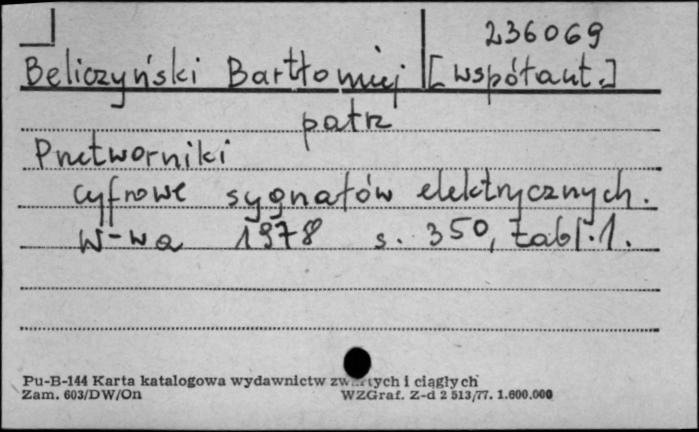 236069
Beliczyński Bartłomiej [współaut.]
patrz
Przetworniki
cyfrowe sygnałów elektrycznych.
W-wa 1978 s. 350, tabl. 1.
Pu-B-144 Karta katalogowa wydawnictw i ciągłych
Zam. 603/DW/On WZGraf. Z-d 2 513/77. 1.600.000